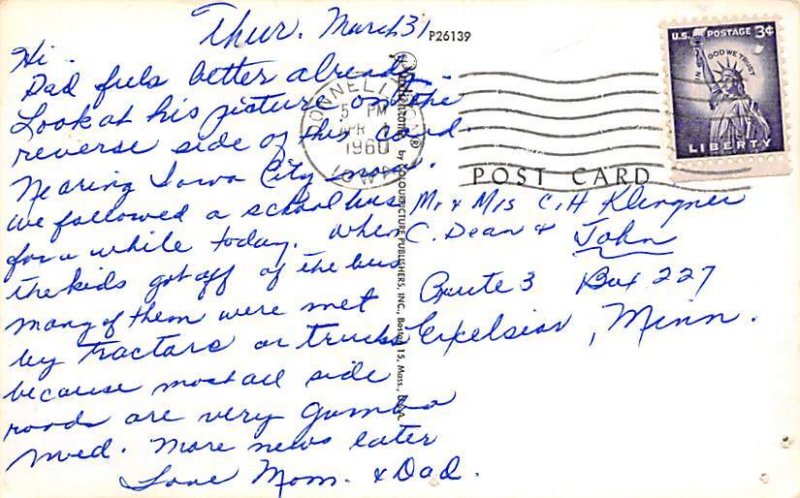 Thur. March 31
P26139
Hi -
Dad feels better already -
Look at his picture on the
reverse side of this card.
Nearing Iowa City now.
We followed a school bus
for a while today. When
the kids got off of the bus
many of them were met
by tractors or trucks
because most all side
roads are very gumbo
mud. More news later
Love Mom. & Dad.
by COLOURPICTURE PUBLISHERS, INC., Boston 15, Mass., U.S.A.
5 PM
APR
1960
IOWA
U.S. POSTAGE 3¢
IN GOD WE TRUST
LIBERTY
POST CARD
Mr & Mrs C. H Klingner
C. Dean & John
Route 3 Box 227
Excelsior, Minn.